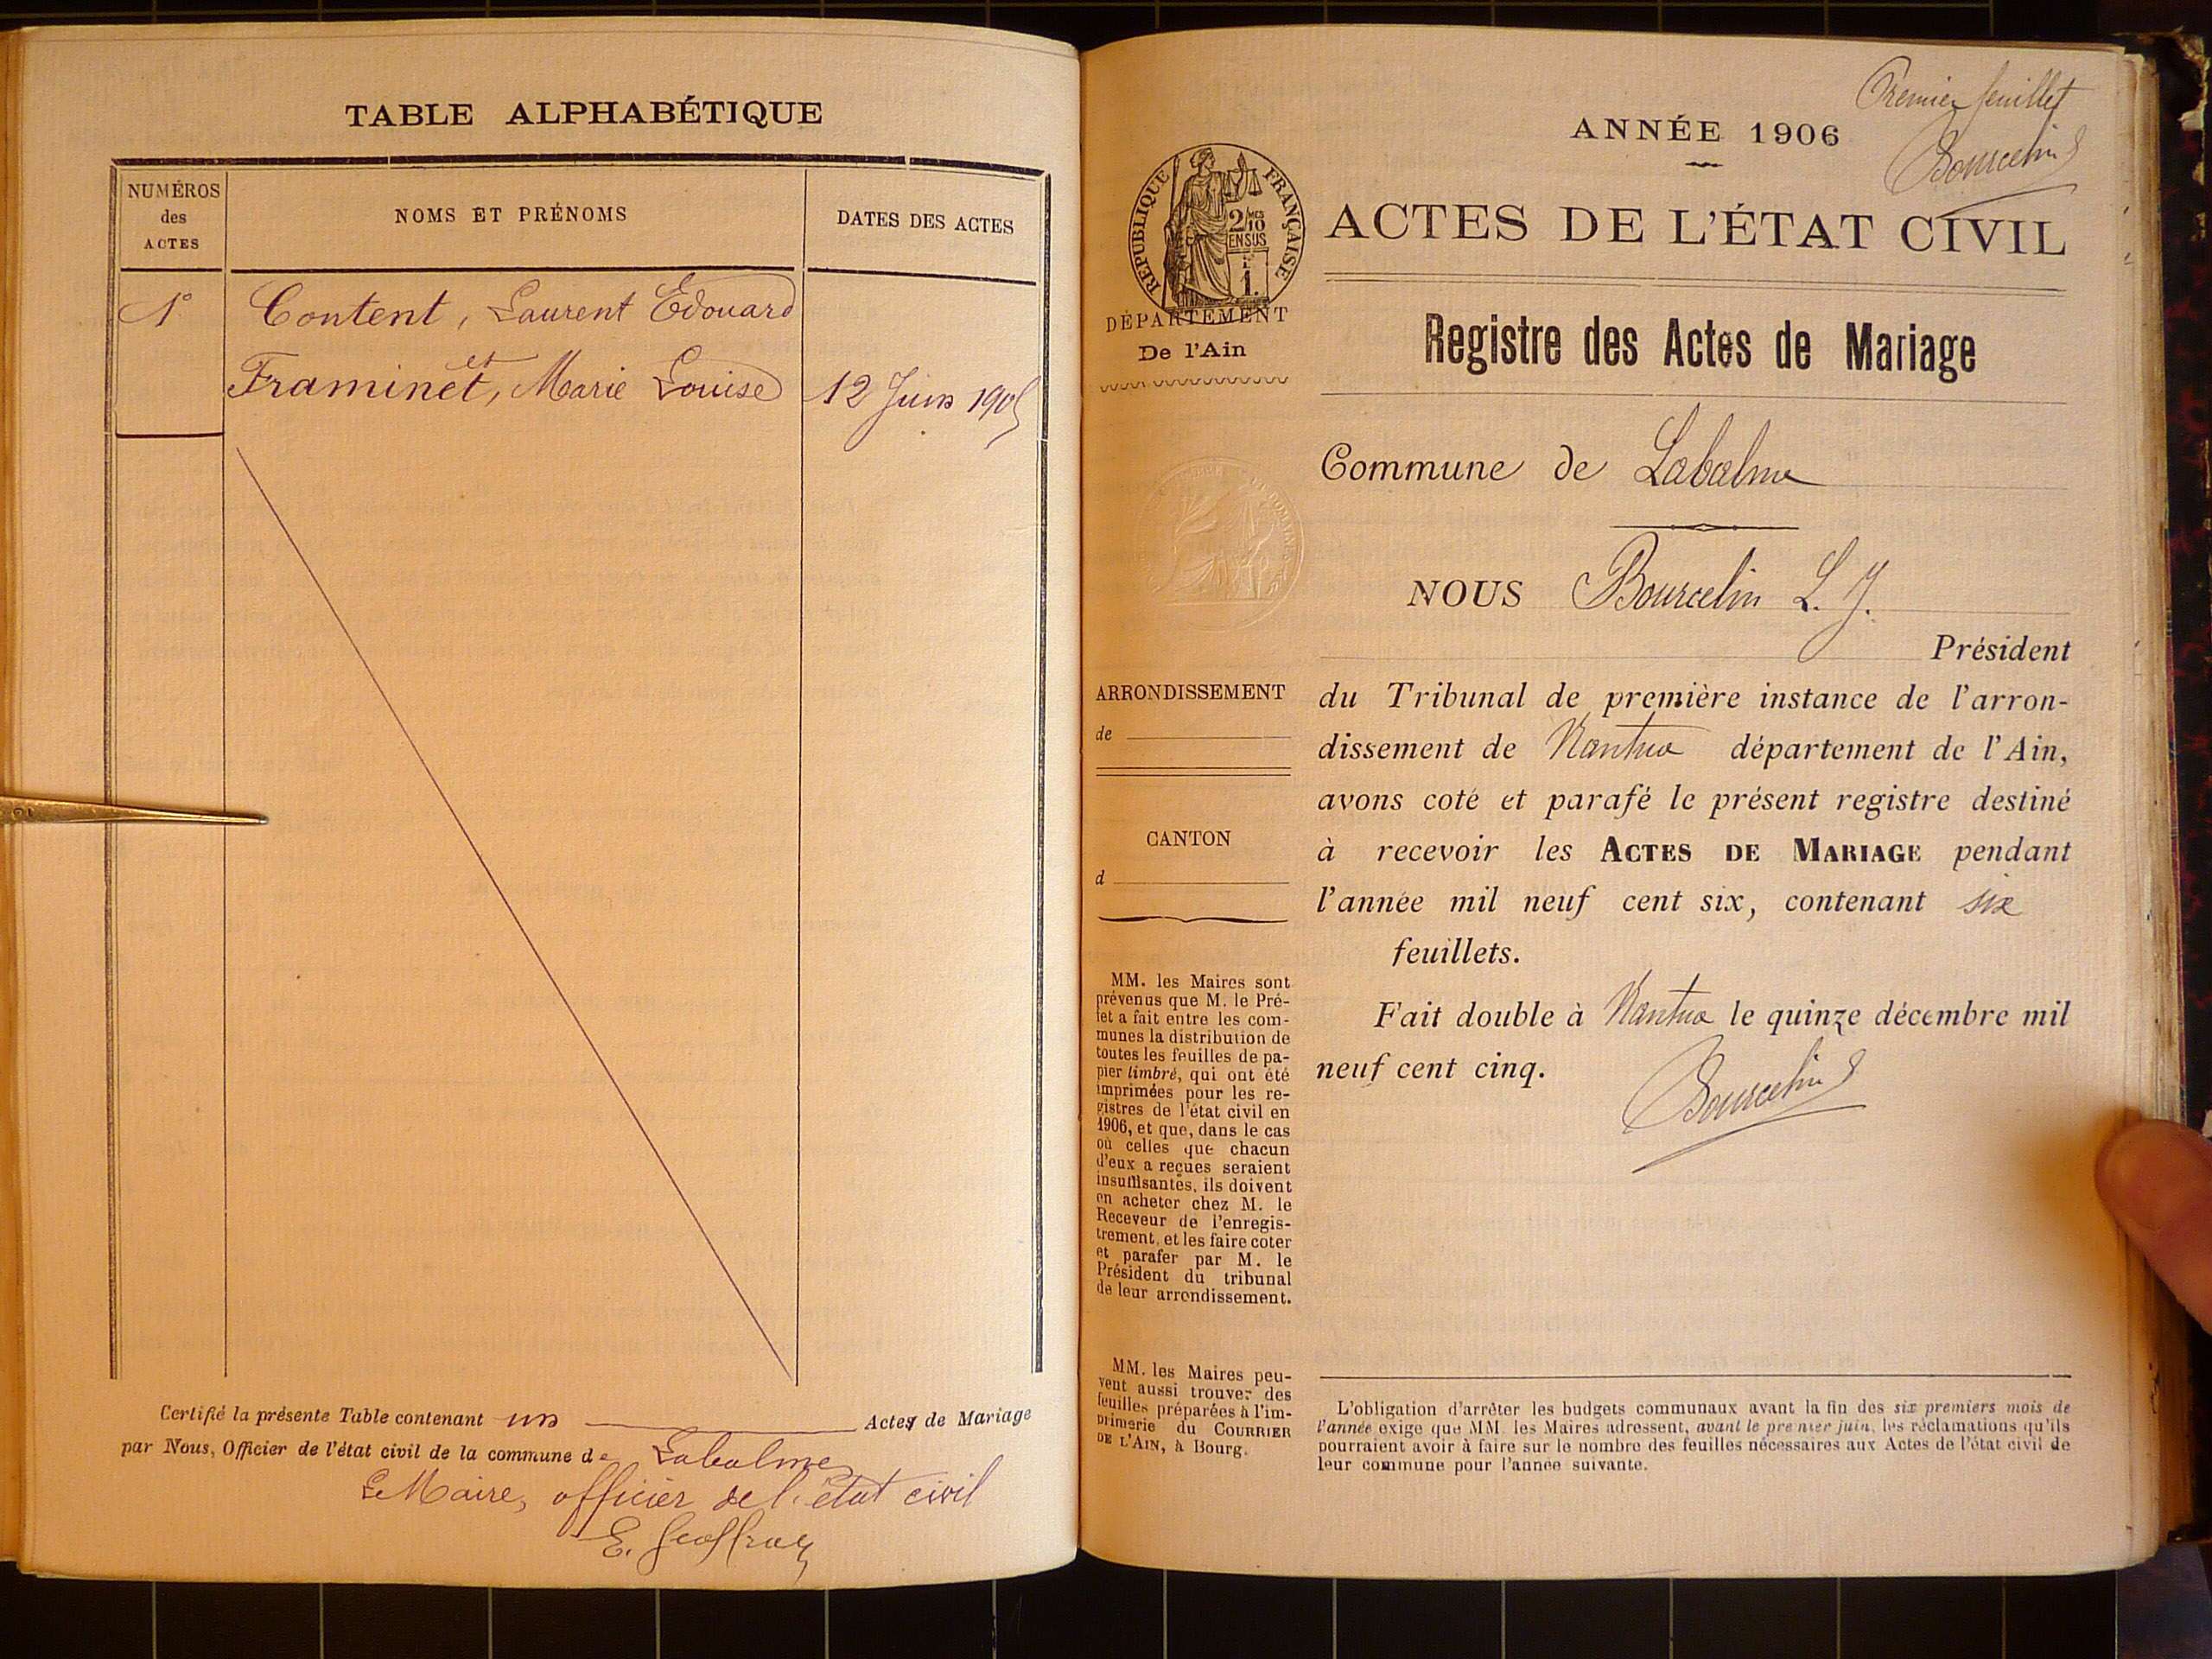 TABLE ALPHABÉTIQUE
NUMÉROS
des
ACTES
NOMS ET PRÉNOMS
DATES DES ACTES
1°
Content, Laurent Edouard
et
Framinet, Marie Louise
12 Juin 1905
Certifié la présente Table contenant un Actes de Mariage
par Nous, Officier de l'état civil de la commune de Labalme
Le Maire, officier de l'état civil
E. Geoffray
Premier feuillet
Bourcelin
ANNÉE 1906
RÉPUBLIQUE FRANÇAISE
2/10
EN SUS
1.
ACTES DE L'ÉTAT CIVIL
DÉPARTEMENT
De l'Ain
Registre des Actes de Mariage
Commune de Labalme
NOUS Bourcelin L. J.
Président
du Tribunal de première instance de l'arron-
dissement de Nantua département de l'Ain,
avons coté et parafé le présent registre destiné
à recevoir les ACTES DE MARIAGE pendant
l'année mil neuf cent six, contenant six
feuillets.
Fait double à Nantua le quinze décembre mil
neuf cent cinq.
Bourcelin
ARRONDISSEMENT
de
CANTON
d
MM. les Maires sont
prévenus que M. le Pré-
fet a fait entre les com-
munes la distribution de
toutes les feuilles de pa-
pier timbré, qui ont été
imprimées pour les re-
gistres de l'état civil en
1906, et que, dans le cas
où celles que chacun
d'eux a reçues seraient
insuffisantes, ils doivent
en acheter chez M. le
Receveur de l'enregis-
trement, et les faire coter
et parafer par M. le
Président du tribunal
de leur arrondissement.
MM. les Maires peu-
vent aussi trouver des
feuilles préparées à l'im-
primerie du COURRIER
DE L'AIN, à Bourg.
L'obligation d'arrêter les budgets communaux avant la fin des six premiers mois de
l'année exige que MM. les Maires adressent, avant le premier juin, les réclamations qu'ils
pourraient avoir à faire sur le nombre des feuilles nécessaires aux Actes de l'état civil de
leur commune pour l'année suivante.